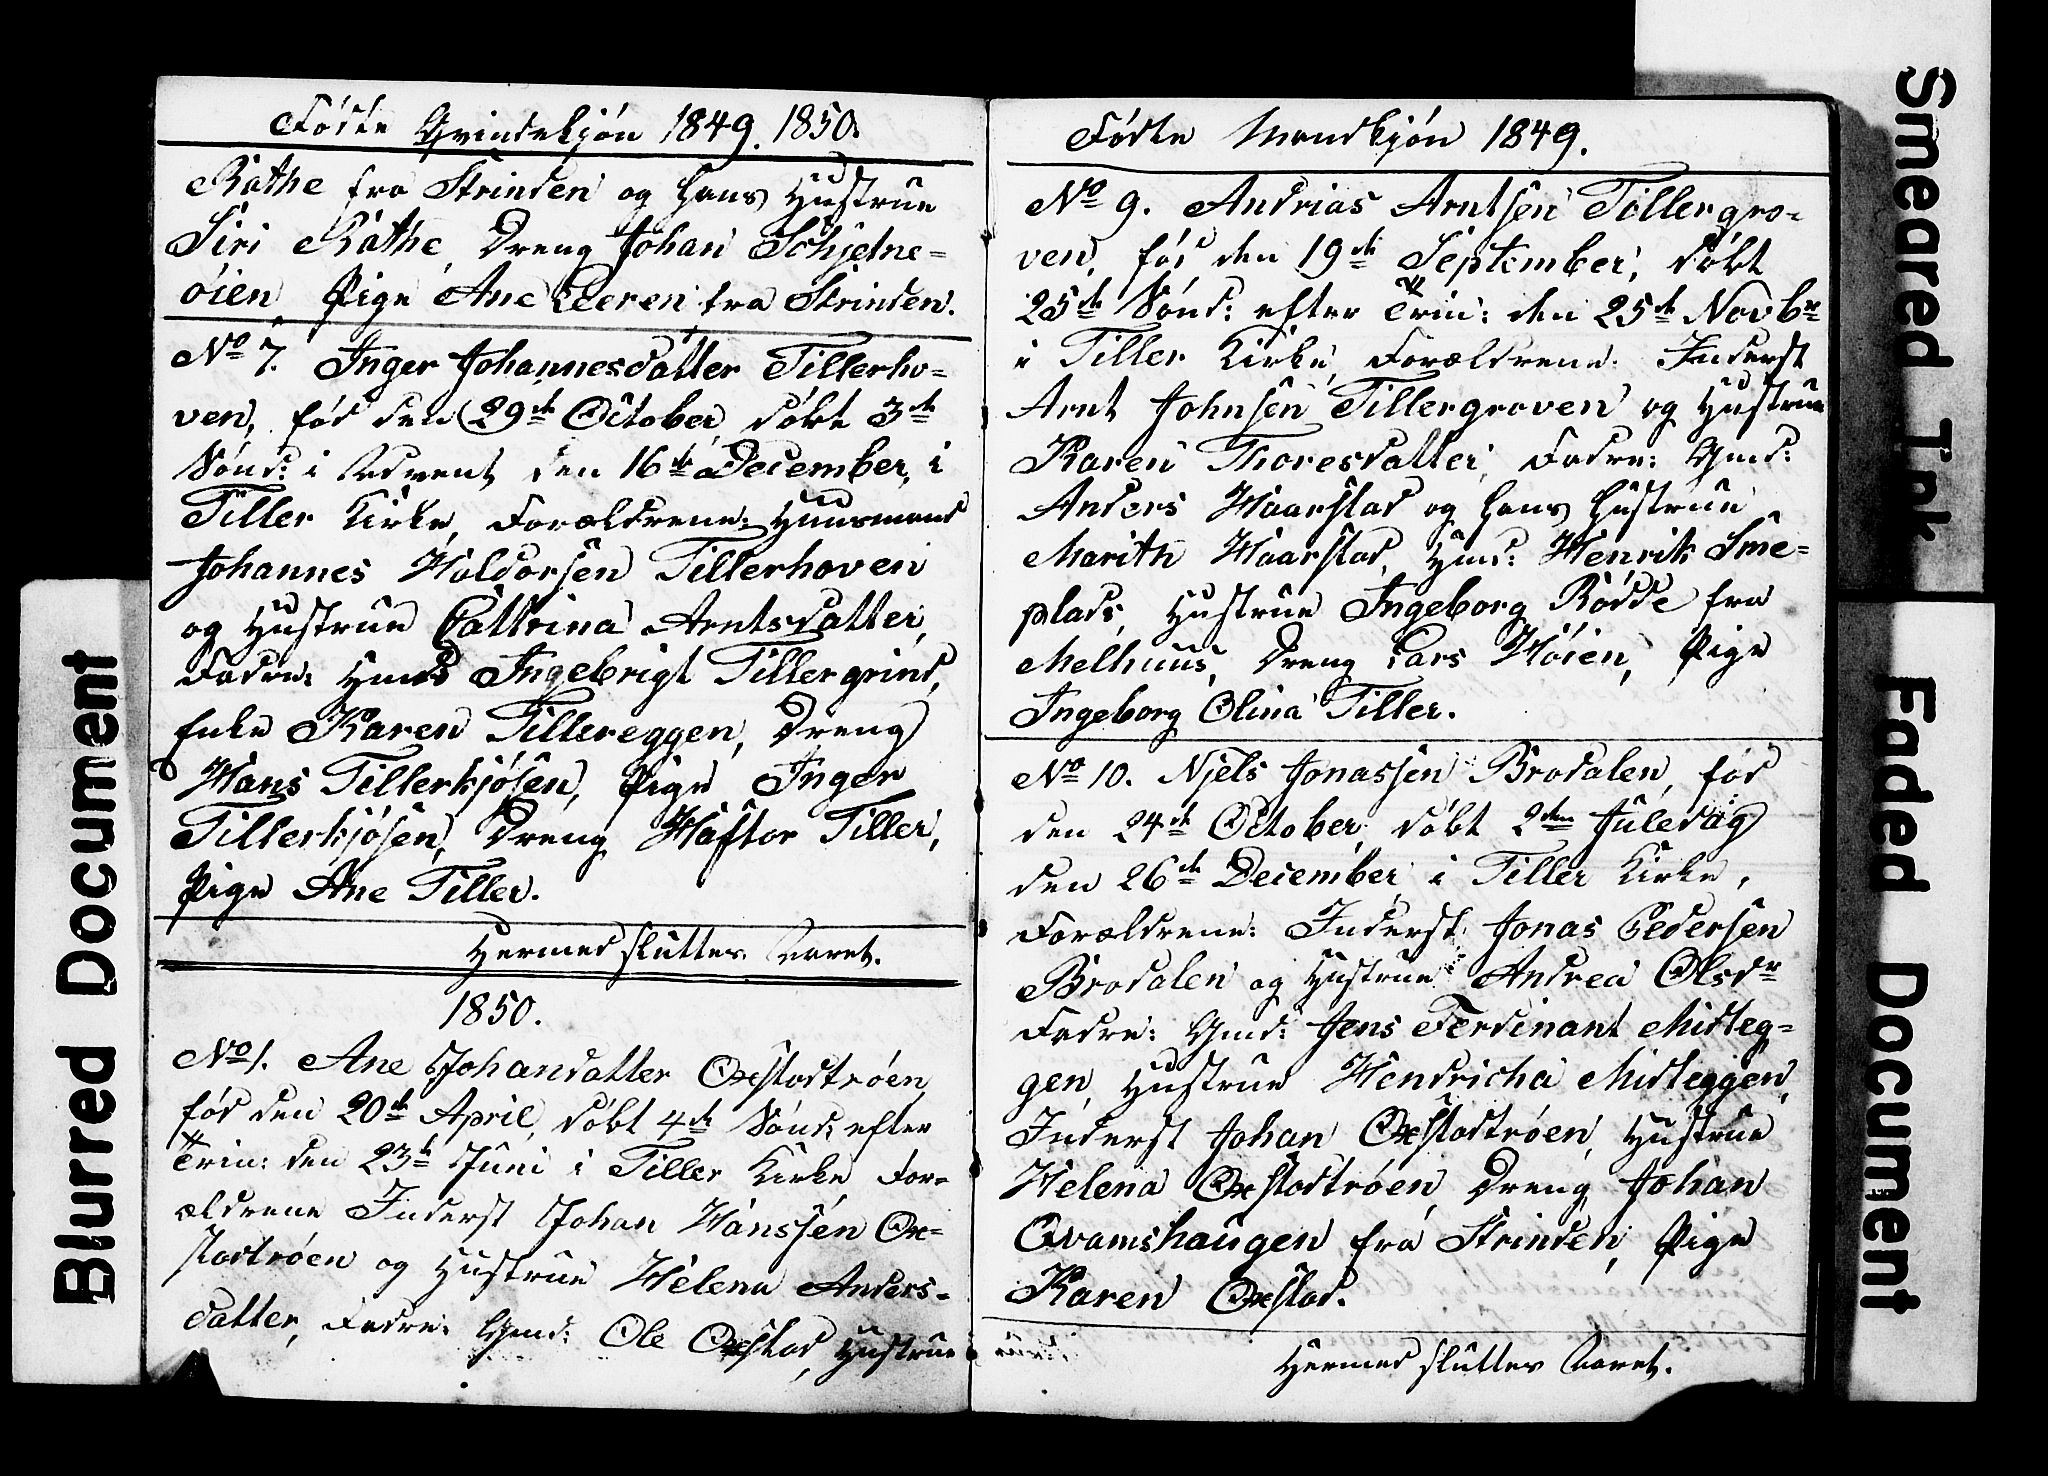 Fødte Qvindekjøn 1849. 1850.
Rathe fra Strinden og hans Hustrue
Siri Rathe, Dreng Johan Schjelne=
øien, Pige Ane Leeren fra Strinden.
No 7. Inger Johannesdatter Tillerho=
ven, fød den 29de October, døbt 3de
Sønd: i Advent den 16de December, i
Tiller Kirke, Forældrene: Huusmand
Johannes Haldorsen Tillerhoven
og Hustrue Cattrina Arntsdatter,
Fadre: Hmd Ingebrigt Tillergrind,
Enke Karen Tillereggen, Dreng
Hans Tillerkjøsen, Pige Inger
Tillerkjøsen, Dreng Haftor Tiller,
Pige Ane Tiller.
Hermed sluttes Aaret.
1850.
No 1. Ane Johansdatter Oxstadtrøen,
fød den 20de April, døbt 4de Sønd: efter
Trin: den 23de Juni i Tiller Kirke For=
ældrene Inderst Johan Hanssen Ox=
stadtrøen og Hustrue Helena Anders=
datter, Fadre: Gmd: Ole Oxstad, Hustrue
Fødte Mandkjøn 1849.
No 9. Andrias Arntsen Tillergro=
ven, fød den 19de September, døbt
25de Sønd: efter Trin: den 25de Novbr
i Tiller Kirke, Forældrene: Inderst
Arnt Johnsen Tillergroven og Hustrue
Karen Thoresdatter, Fadre: Gmd:
Anders Haarstad og hans Hustrue
Marith Haarstad, Hmd: Henrik Sme=
plads, Hustrue Ingeborg Rødde fra
Melhuus, Dreng Lars Høien, Pige
Ingeborg Olina Tiller.
No 10. Njels Jonassen Brodalen, fød
den 24de October, døbt 2den Juledag
den 26de December i Tiller Kirke,
Forældrene: Inderst Jonas Pedersen
Brodalen og Hustrue Andrea Olsdr
Fadre: Gmd: Jens Ferdinant Midteg=
gen, Hustrue Hendricha Midteggen,
Inderst Johan Oxstadtrøen, Hustrue
Helena Oxstadtrøen, Dreng Johan
Qvamshaugen fra Strinden, Pige
Karen Oxstad.
Hermed sluttes Aaret.
Blurred Document
Smeared Ink
Faded Document